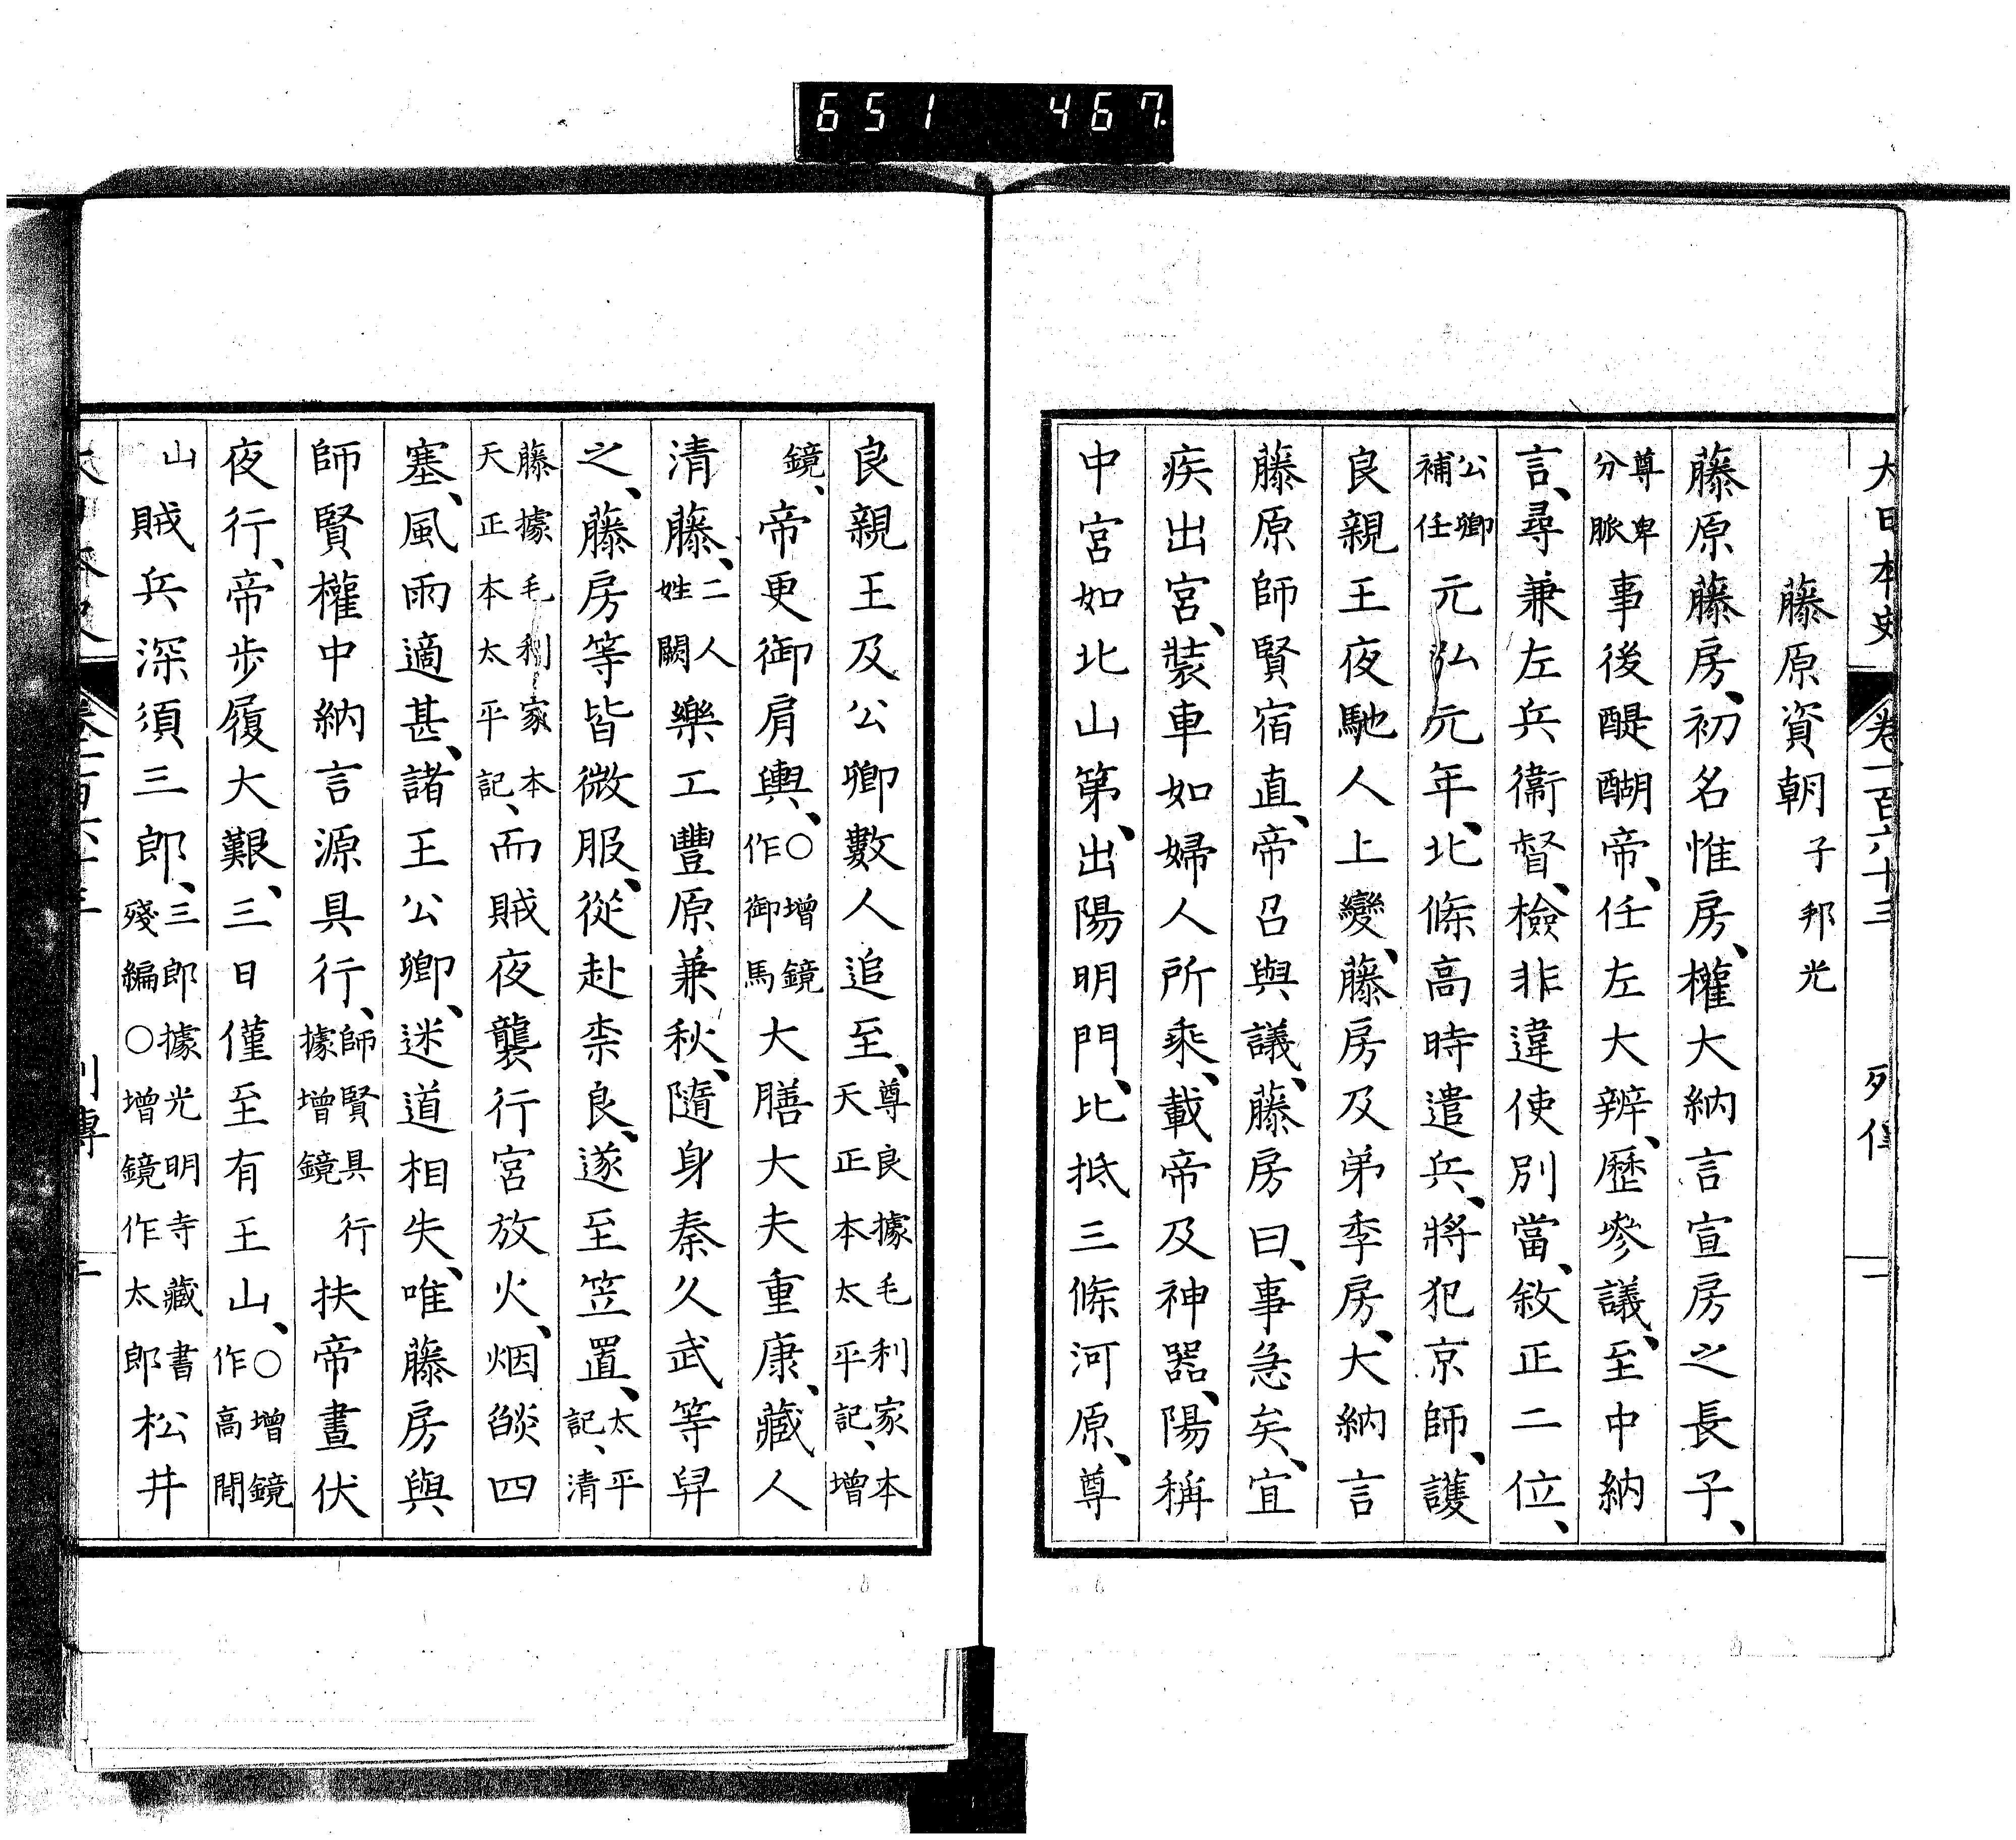 651 467
大日本史 卷一百六十三 列傳 一
藤原資朝 子邦光
藤原藤房、初名惟房、權大納言宣房之長子、
尊卑分脈事後醍醐帝、任左大辨、歷參議、至中納
言、尋兼左兵衞督、檢非違使別當、敘正二位、
公卿補任元弘元年、北條高時遣兵、將犯京師、護
良親王夜馳人上變、藤房及弟季房、大納言
藤原師賢宿直、帝召與議、藤房曰、事急矣、宜
疾出宮、裝車如婦人所乘、載帝及神器、陽稱
中宮如北山第、出陽明門、比抵三條河原、尊
良親王及公卿數人追至、尊良據毛利家本天正本太平記、增
鏡、帝更御肩輿、○增鏡作御馬大膳大夫重康、藏人
清藤、二人姓闕樂工豐原兼秋、隨身秦久武等舁
之、藤房等皆微服、從赴柰良、遂至笠置、太平記、清
藤據毛利家本天正本太平記、而賊夜襲行宮放火、烟燄四
塞、風雨適甚、諸王公卿、迷道相失、唯藤房與
師賢權中納言源具行、師賢具行據增鏡扶帝晝伏
夜行、帝步履大艱、三日僅至有王山、○增鏡作高間
山賊兵深須三郎、三郎據光明寺藏書殘編○增鏡作太郎松井